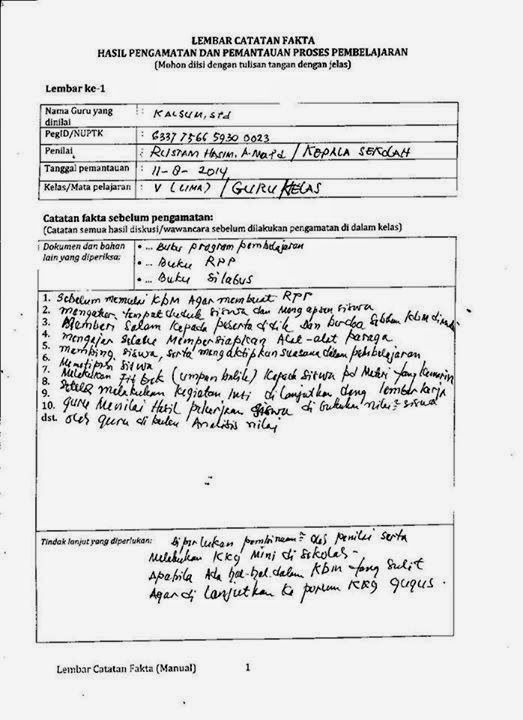 LEMBAR CATATAN FAKTA
HASIL PENGAMATAN DAN PEMANTAUAN PROSES PEMBELAJARAN
(Mohon diisi dengan tulisan tangan dengan jelas)
Lembar ke-1
Nama Guru yang dinilai : KALSUM, Spd
PegID/NUPTK : 6337 7566 5930 0023
Penilai : RUSTAM HASIM, A.Ma.Pd / KEPALA SEKOLAH
Tanggal pemantauan : 11-8-2014
Kelas/Mata pelajaran : V (LIMA) / GURU KELAS
Catatan fakta sebelum pengamatan:
(Catatan semua hasil diskusi/wawancara sebelum dilakukan pengamatan di dalam kelas)
Dokumen dan bahan lain yang diperiksa:
• ... Buku program pembelajaran
• ... Buku RPP
• ... Buku Silabus
1. Sebelum memulai KBM Agar membuat RPP
2. mengatur tempat duduk siswa dan mengapsen siswa
3. Memberi Salam kepada peserta didik Dan berdoa Sblum KBM
4. mengajar selalu Mempersiapkan Alat-alat peraga
5. siswa, serta mengaktipkan suasana dalam pembelajaran
6. siswa
7. Melakukan (umpan balik) kepada siswa pd Materi yang kemarin
8. Setelah melakukan kegiatan Inti di lanjutkan deng lembar kerja
9.
10. guru Menilai Hasil pekerjaan siswa di bukukan nilai2 siswa
dst. oleh guru di buku Analisis nilai
Tindak lanjut yang diperlukan: Diperlukan pembinaan2 dari penilai serta
Melakukan KKG Mini di Sekolah -
Apabila Ada hal-hal dalam KBM yang Sulit
Agar di lanjutkan ke porum KKG gugus.
Lembar Catatan Fakta (Manual) 1